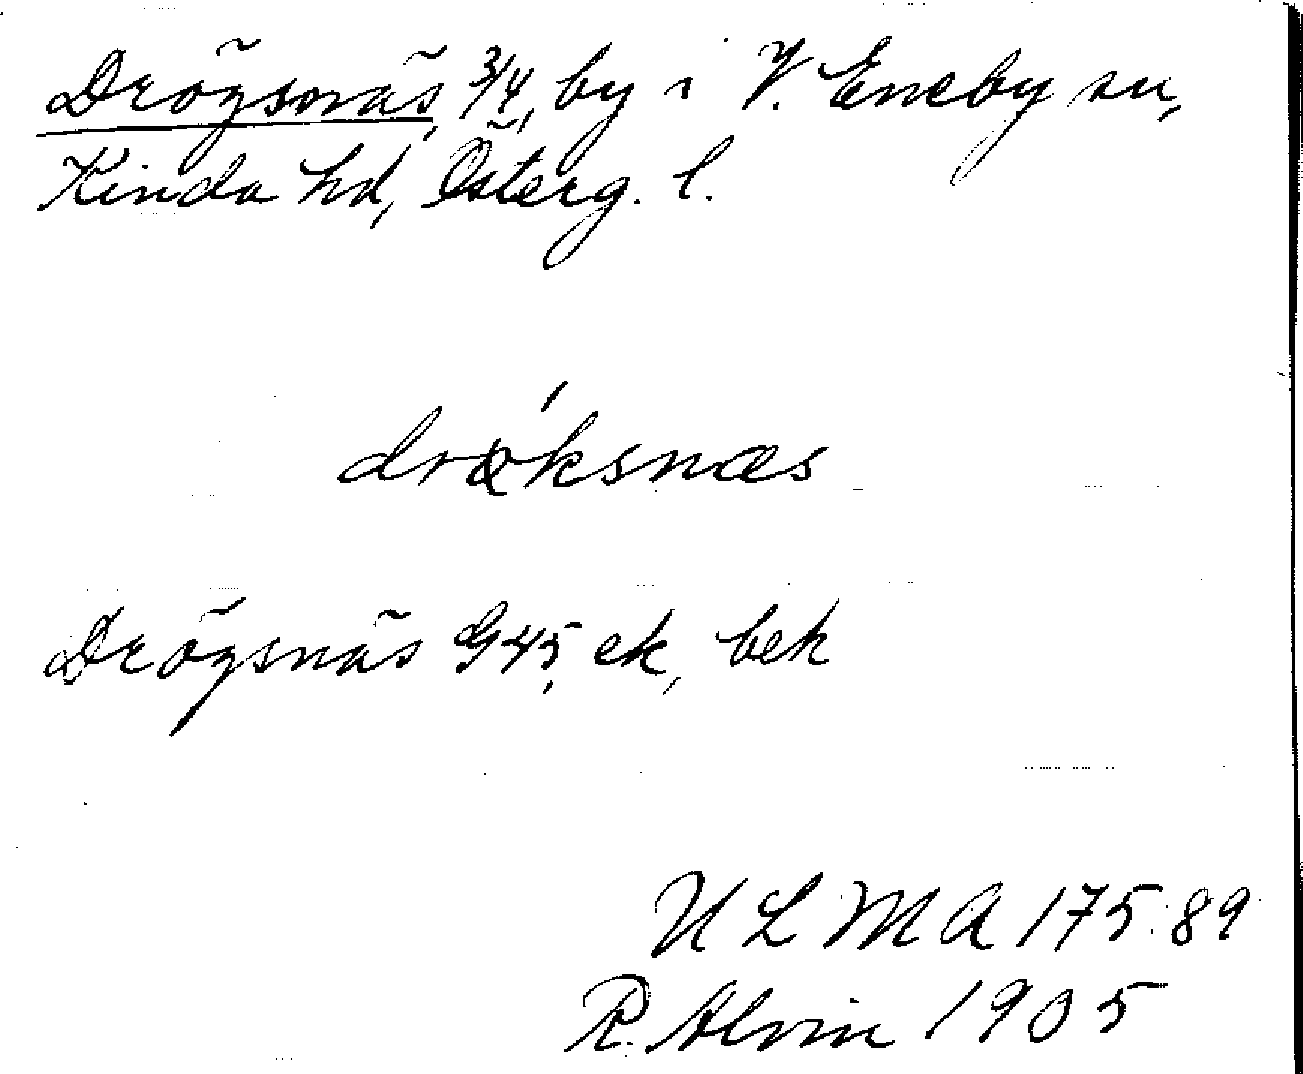 Drögsnäs, 3/4, by i V. Eneby sn,
Kinda hd, Österg. l.
drø´ksnæs
Drögsnäs G45, ek, bek
ULMA 175:89
R. Alvin 1905